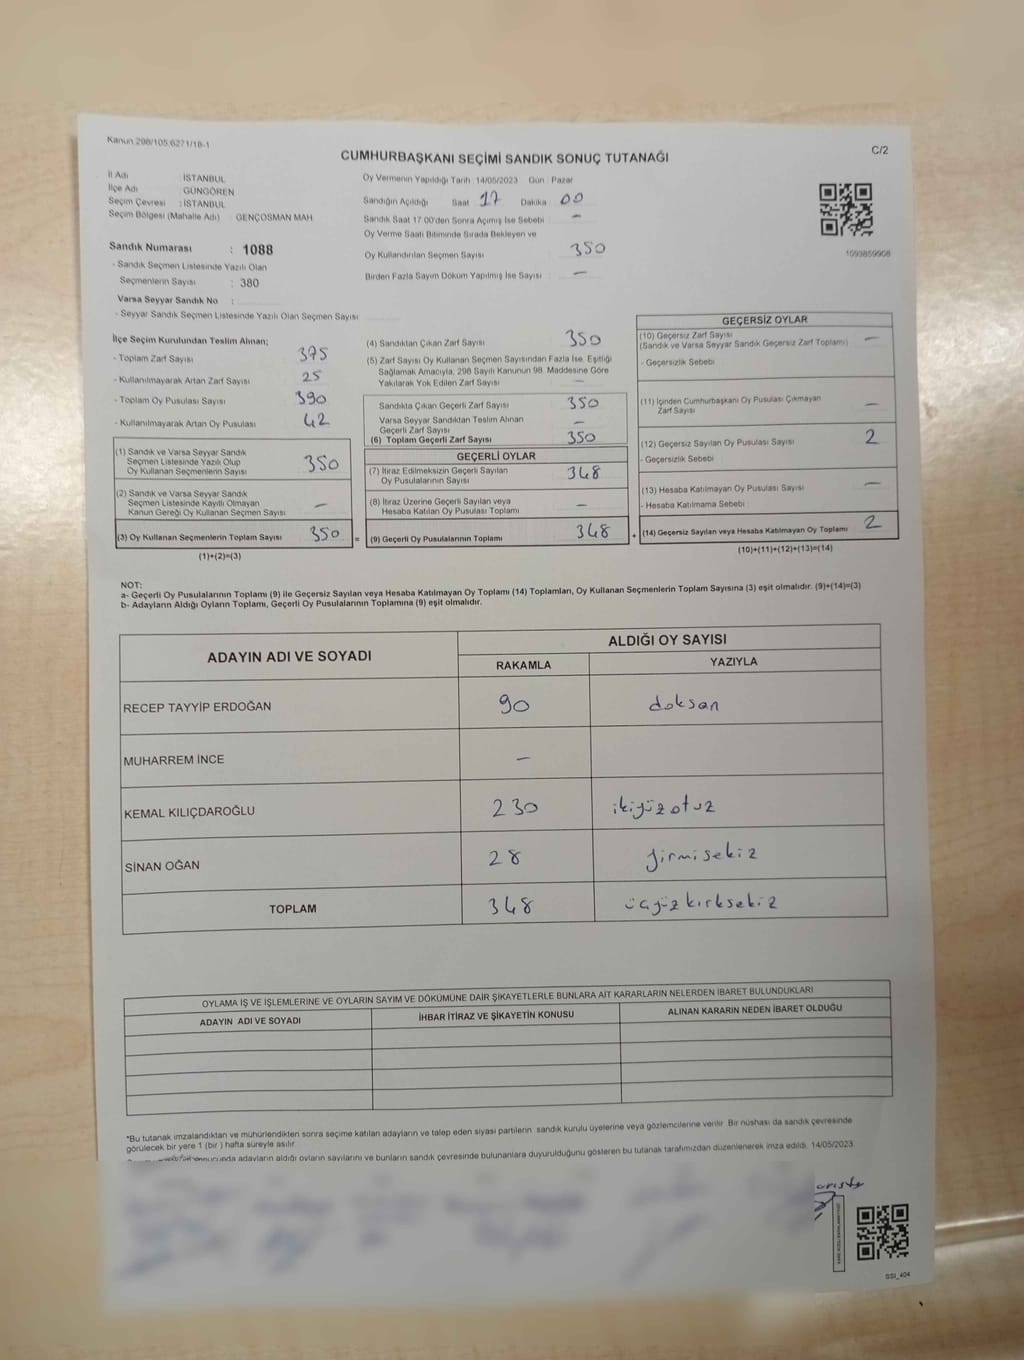 Kanun 298/105,6271/18-1
CUMHURBAŞKANI SEÇİMİ SANDIK SONUÇ TUTANAĞI
C/2
İl Adı : İSTANBUL
İlçe Adı : GÜNGÖREN
Seçim Çevresi : İSTANBUL
Seçim Bölgesi (Mahalle Adı) : GENÇOSMAN MAH.
Sandık Numarası : 1088
- Sandık Seçmen Listesinde Yazılı Olan
Seçmenlerin Sayısı : 380
Varsa Seyyar Sandık No :
- Seyyar Sandık Seçmen Listesinde Yazılı Olan Seçmen Sayısı
Oy Vermenin Yapıldığı Tarih : 14/05/2023 Gün : Pazar
Sandığın Açıldığı Saat 17 Dakika 00
Sandık Saat 17:00'den Sonra Açılmış İse Sebebi -
Oy Verme Saati Bitiminde Sırada Bekleyen ve
Oy Kullandırılan Seçmen Sayısı 350
Birden Fazla Sayım Döküm Yapılmış İse Sayısı -
1093859908
İlçe Seçim Kurulundan Teslim Alınan;
- Toplam Zarf Sayısı 375
- Kullanılmayarak Artan Zarf Sayısı 25
- Toplam Oy Pusulası Sayısı 390
- Kullanılmayarak Artan Oy Pusulası 42
(1) Sandık ve Varsa Seyyar Sandık
Seçmen Listesinde Yazılı Olup
Oy Kullanan Seçmenlerin Sayısı 350
(2) Sandık ve Varsa Seyyar Sandık
Seçmen Listesinde Kayıtlı Olmayan
Kanun Gereği Oy Kullanan Seçmen Sayısı -
(3) Oy Kullanan Seçmenlerin Toplam Sayısı 350 =
(1)+(2)=(3)
(4) Sandıktan Çıkan Zarf Sayısı 350
(5) Zarf Sayısı Oy Kullanan Seçmen Sayısından Fazla İse, Eşitliği
Sağlamak Amacıyla, 298 Sayılı Kanunun 98. Maddesine Göre
Yakılarak Yok Edilen Zarf Sayısı -
Sandıkta Çıkan Geçerli Zarf Sayısı 350
Varsa Seyyar Sandıktan Teslim Alınan
Geçerli Zarf Sayısı -
(6) Toplam Geçerli Zarf Sayısı 350
GEÇERLİ OYLAR
(7) İtiraz Edilmeksizin Geçerli Sayılan
Oy Pusulalarının Sayısı 348
(8) İtiraz Üzerine Geçerli Sayılan veya
Hesaba Katılan Oy Pusulası Toplamı -
(9) Geçerli Oy Pusulalarının Toplamı 348 +
GEÇERSİZ OYLAR
(10) Geçersiz Zarf Sayısı
(Sandık ve Varsa Seyyar Sandık Geçersiz Zarf Toplamı) -
- Geçersizlik Sebebi
(11) İçinden Cumhurbaşkanı Oy Pusulası Çıkmayan
Zarf Sayısı -
(12) Geçersiz Sayılan Oy Pusulası Sayısı 2
- Geçersizlik Sebebi
(13) Hesaba Katılmayan Oy Pusulası Sayısı -
- Hesaba Katılmama Sebebi
(14) Geçersiz Sayılan veya Hesaba Katılmayan Oy Toplamı 2
(10)+(11)+(12)+(13)=(14)
NOT:
a- Geçerli Oy Pusulalarının Toplamı (9) ile Geçersiz Sayılan veya Hesaba Katılmayan Oy Toplamı (14) Toplamları, Oy Kullanan Seçmenlerin Toplam Sayısına (3) eşit olmalıdır. (9)+(14)=(3)
b- Adayların Aldığı Oyların Toplamı, Geçerli Oy Pusulalarının Toplamına (9) eşit olmalıdır.
ADAYIN ADI VE SOYADI
ALDIĞI OY SAYISI
RAKAMLA YAZIYLA
RECEP TAYYİP ERDOĞAN 90 doksan
MUHARREM İNCE -
KEMAL KILIÇDAROĞLU 230 ikiyüzotuz
SİNAN OĞAN 28 yirmisekiz
TOPLAM 348 üçyüzkırksekiz
OYLAMA İŞ VE İŞLEMLERİNE VE OYLARIN SAYIM VE DÖKÜMÜNE DAİR ŞİKAYETLERLE BUNLARA AİT KARARLARIN NELERDEN İBARET BULUNDUKLARI
ADAYIN ADI VE SOYADI İHBAR İTİRAZ VE ŞİKAYETİN KONUSU ALINAN KARARIN NEDEN İBARET OLDUĞU
*Bu tutanak imzalandıktan ve mühürlendikten sonra seçime katılan adayların ve talep eden siyasi partilerin sandık kurulu üyelerine veya gözlemcilerine verilir. Bir nüshası da sandık çevresinde
görülecek bir yere 1 (bir ) hafta süreyle asılır.
adayların aldığı oyların sayılarını ve bunların sandık çevresinde bulunanlara duyurulduğunu gösteren bu tutanak tarafımızdan düzenlenerek imza edildi. 14/05/2023
SSI_404